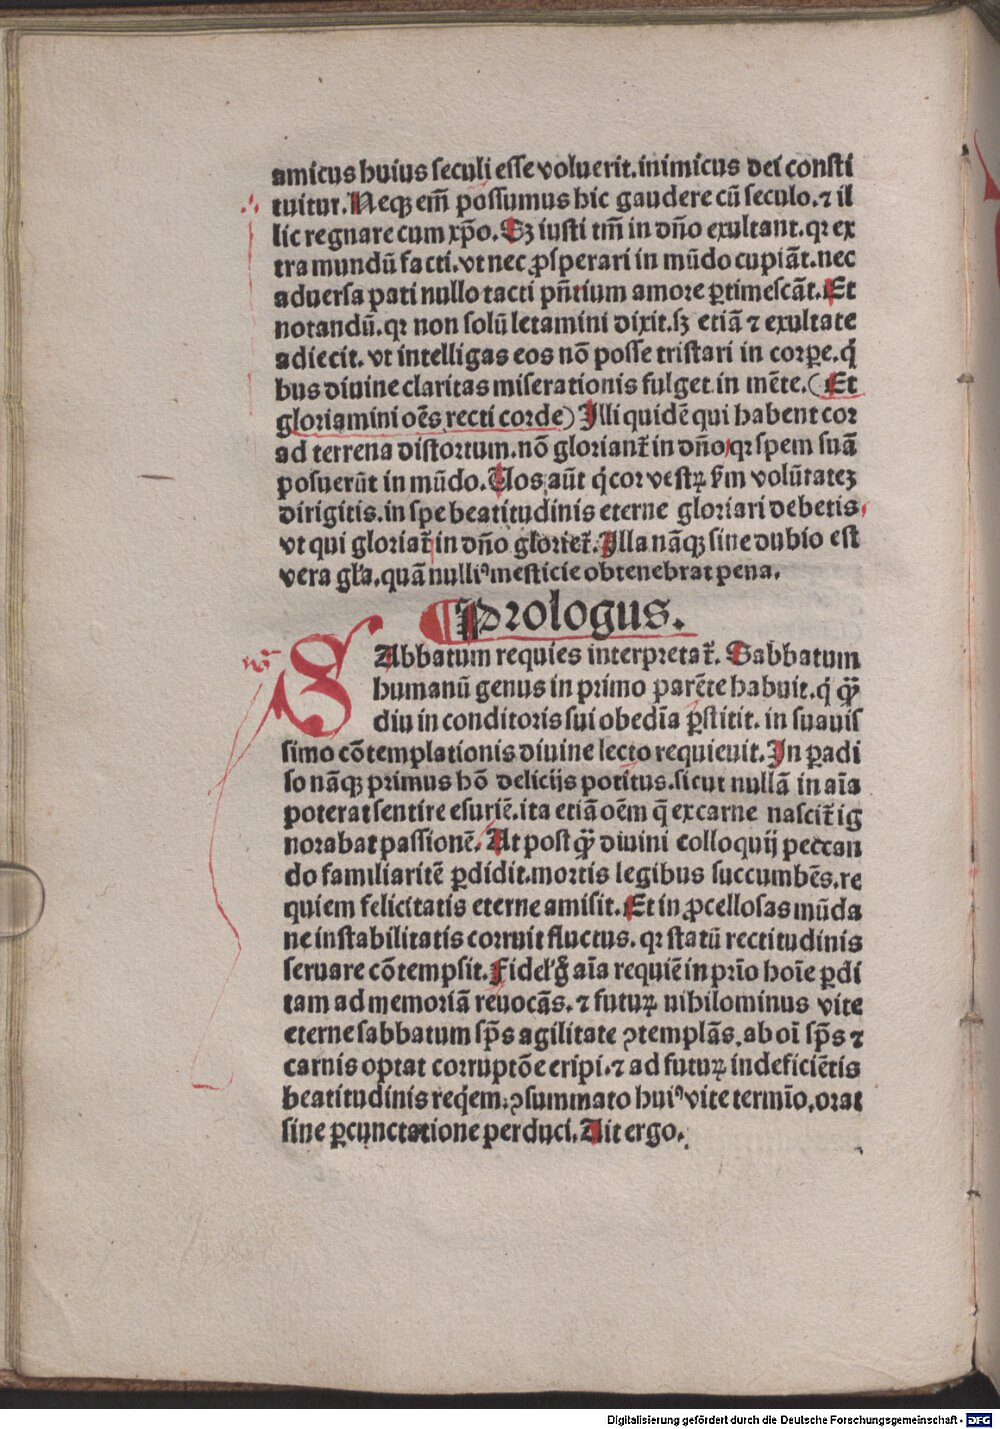 amicus huius seculi esse voluerit. inimicus dei consti
tuitur. Neqȝ em̄ possumus hic gaudere cū seculo. ⁊ il
lic regnare cum xp̄o. Sȝ iusti tm̄ in dn̄o exultant. qꝛ ex
tra mundū facti. vt nec ꝓsperari in mūdo cupiāt. nec
aduersa pati nullo tacti pn̄tium amore ꝑtimescāt. Et
notandū. qꝛ non solū letamini dixit. sȝ etiā ⁊ exultate
adiecit. vt intelligas eos nō posse tristari in corꝑe. q̇
bus diuine claritas miserationis fulget in mēte. (Et
gloriamini oēs recti corde) Illi quidē qui habent cor
ad terrena distortum. nō gloriant̄ in dn̄o qꝛ spem suā
posuerūt in mūdo. Uos aūt q̇ cor vestꝝ fm̄ volūtatez
dirigitis. in spe beatitudinis eterne gloriari debetis.
vt qui gloriat̄ in dn̄o gloriet̄. Illa nāqȝ sine dubio est
vera gl̄a. quā nulliꝰ mesticie obtenebrat pena.
¶ Prologus.
nō
SAbbatum requies interpretat̄. Sabbatum
humanū genus in primo parēte habuit. q̇ qꝫ̄
diu in conditoris sui obedīa ꝑstitit. in suauis
simo cōtemplationis diuine lecto requieuit. In ꝑadi
so nāqȝ primus hō delicijs potitus. sicut nullā in aīa
poterat sentire esuriē. ita etiā oēm q̄ ex carne nascit̄ ig
norabat passionē. At post qꝫ̄ diuini colloquij peccan
do familiaritē ꝑdidit. mortis legibus succumbēs. re
quiem felicitatis eterne amisit. Et in ꝓcellosas mūda
ne instabilitatis corruit fluctus. qꝛ statū rectitudinis
seruare cōtempsit. Fidel̄ g̊ aīa requiē in prīo hoīe ꝑdi
tam ad memoriā reuocās. ⁊ futuꝝ nihilominus vite
eterne sabbatum sp̄s agilitate ꝯtemplās. ab oī sp̄s ⁊
carnis optat corruptōe eripi. ⁊ ad futuꝝ indeficiētis
beatitudinis req̇em. ꝯsummato huiꝰ vite termīo. orat
sine ꝑcunctatione perduci. Ait ergo.
Digitalisierung gefördert durch die Deutsche Forschungsgemeinschaft - DFG